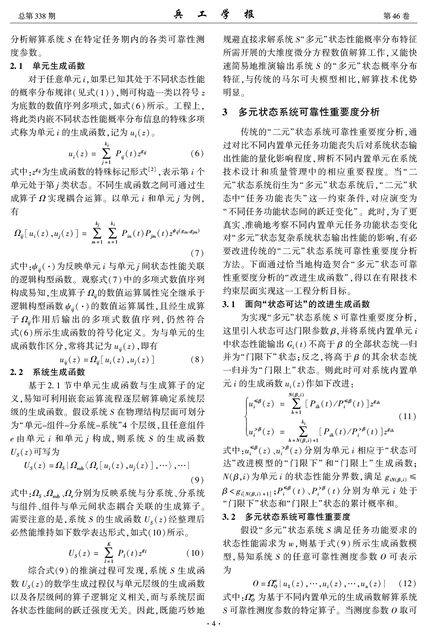 总第 338 期
兵 工 学 报
第 46 卷
分析解算系统 S 在特定任务期内的各类可靠性测
度参数。
2.1 单元生成函数
对于任意单元 i,如果已知其处于不同状态性能
的概率分布规律(见式(1)),则可构造一类以符号 z
为底数的数值序列多项式,如式(6)所示。工程上,
将此类内嵌不同状态性能概率分布信息的特殊多项
式称为单元 i 的生成函数,记为 ui(z)。
式中:z^gij为生成函数的特殊标记形式[2],表示第 i 个
单元处于第 j 类状态。不同生成函数之间可通过生
成算子 Ω 实现耦合运算。以单元 i 和单元 j 为例,
有
(7)
式中:ψij(·)为反映单元 i 与单元 j 间状态性能关联
的逻辑构型函数。观察式(7)中的多项式数值序列
构成易知,生成算子 Ωij的数值运算属性完全继承于
逻辑构型函数 ψij(·)的数值运算属性,且经生成算
子 Ωij作用后输出的多项式数值序列,仍然符合
式(6)所示生成函数的符号化定义。为与单元的生
成函数作区分,常将其记为 uij(z),即有
uij(z) = Ωij[ui(z),uj(z)] (8)
2.2 系统生成函数
基于 2.1 节中单元生成函数与生成算子的定
义,易知可利用嵌套运算流程逐层解算确定系统层
级的生成函数。假设系统 S 在物理结构层面可划分
为“单元-组件-分系统-系统”4 个层级,且任意组件
e 由单元 i 和单元 j 构成,则系统 S 的生成函数
US(z)可写为
(9)
与组件、组件与单元间状态耦合关联的生成算子。
需要注意的是,系统 S 的生成函数 US(z)经整理后
必然能维持如下数学表达形式,如式(10)所示。
(10)
综合式(9)的推演过程可发现,系统 S 生成函
数 US(z)的数学生成过程仅与单元层级的生成函数
以及各层级间的算子逻辑定义相关,而与系统层面
各状态性能间的跃迁强度无关。因此,既能巧妙地
规避直接求解系统 S“多元”状态性能概率分布特征
所需开展的大维度微分方程数值解算工作,又能快
速简易地推演输出系统 S 的“多元”状态概率分布
特征,与传统的马尔可夫模型相比,解算技术优势
明显。
3 多元状态系统可靠性重要度分析
传统的“二元”状态系统可靠性重要度分析,通
过对比不同内置单元任务功能丧失后对系统状态输
出性能的量化影响程度,辨析不同内置单元在系统
技术设计和质量管理中的相应重要程度。当“二
元”状态系统衍生为“多元”状态系统后,“二元”状
态中“任务功能丧失”这一约束条件,对应演变为
“不同任务功能状态间的跃迁变化”。此时,为了更
真实、准确地考察不同内置单元任务功能状态变化
对“多元”状态复杂系统状态输出性能的影响,有必
要改进传统的“二元”状态系统可靠性重要度分析
方法。下面通过恰当地构造契合“多元”状态可靠
性重要度分析的“改进生成函数”,得以在有限技术
约束层面实现这一工程分析目标。
3.1 面向“状态可达”的改进生成函数
为实现“多元”状态系统 S 可靠性重要度分析,
这里引入状态可达门限参数 β,并将系统内置单元 i
中状态性能输出 Gi(t)不高于 β 的全部状态统一归
并为“门限下”状态;反之,将高于 β 的其余状态统
一归并为“门限上”状态。则此时可对系统内置单
元 i 的生成函数 ui(z)作如下改进:
(11)
达”改进模型的“门限下”和“门限上”生成函数;
“门限下”状态和“门限上”状态的累计概率和。
3.2 多元状态系统可靠性重要度
假设“多元”状态系统 S 满足任务功能要求的
状态性能需求为 w,则基于式(9)所示生成函数模
型,易知系统 S 的任意可靠性测度参数 O 可表示
为
(12)
S 可靠性测度参数的特定算子。当测度参数 O 取可
· 4 ·